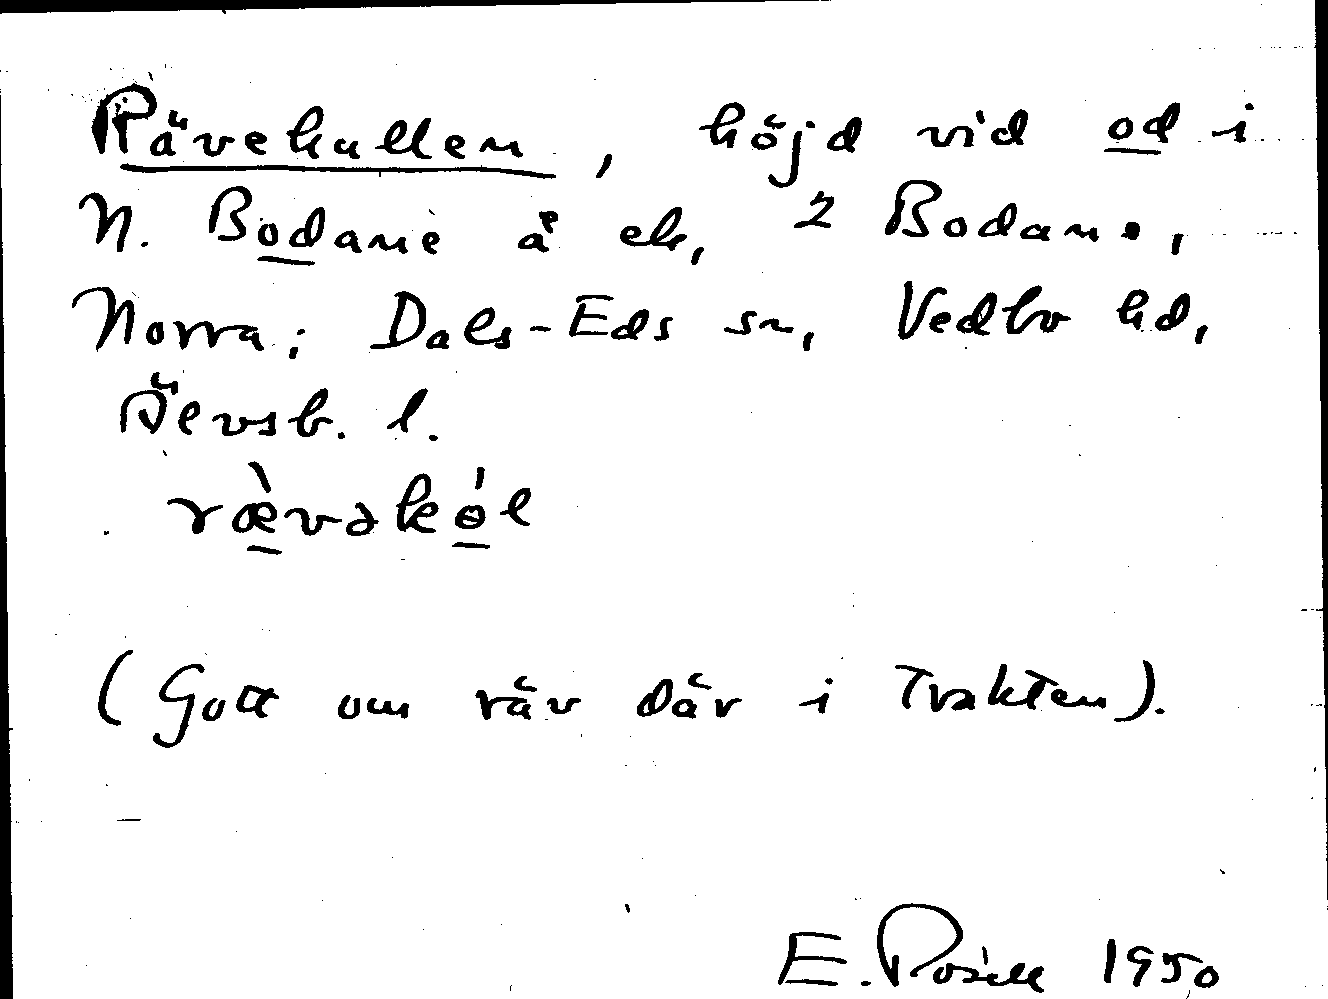 Rävekullen, höjd vid od i
N. Bodane å ek, 2 Bodane,
Norra; Dals-Eds sn, Vedbo hd,
Älvsb. l.
rævəkөl
(Gott om räv där i trakten).
E. Rosell 1950